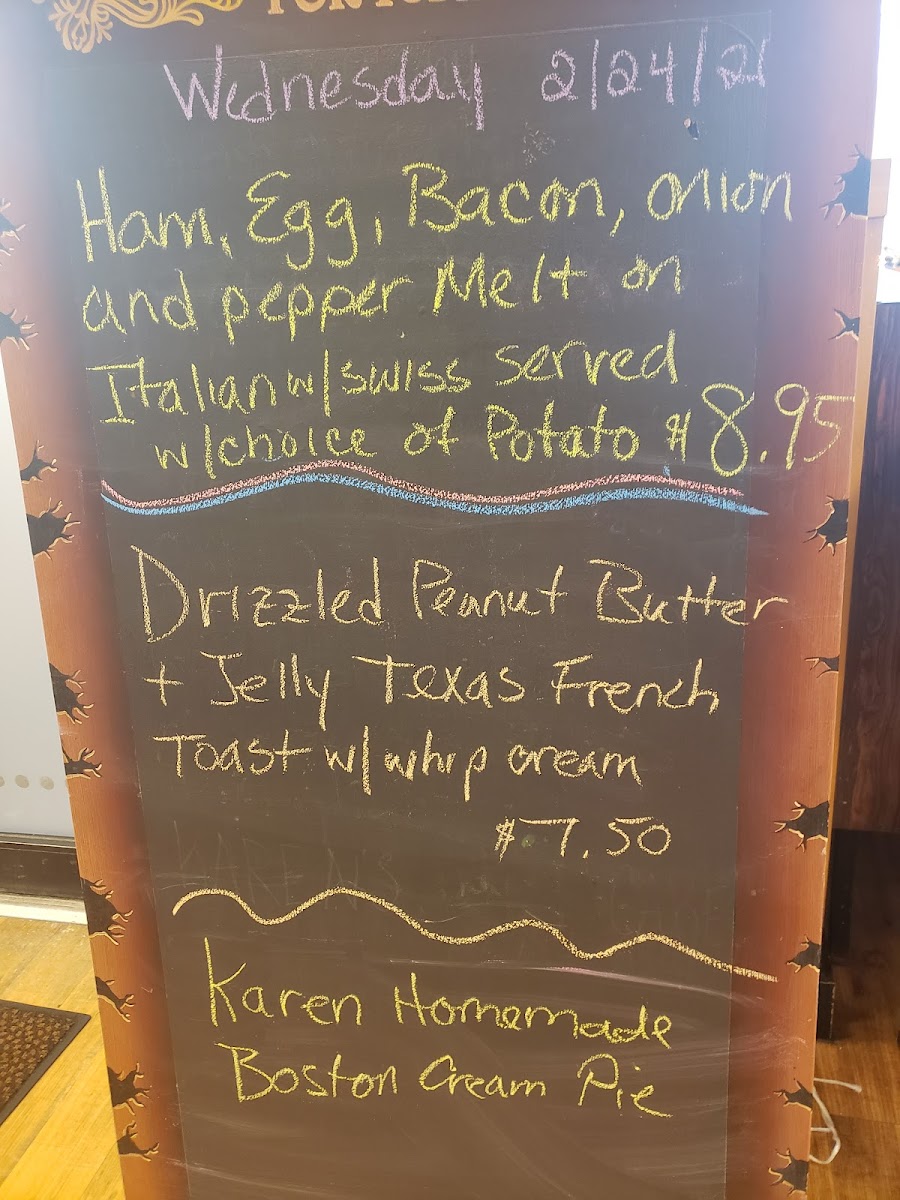 Wednesday 2/24/21
Ham, Egg, Bacon, onion
and pepper Melt on
Italian w/swiss served
w/choice of Potato $8.95
Drizzled Peanut Butter
+ Jelly Texas French
Toast w/ whip cream
$7.50
Karen Homemade
Boston Cream Pie